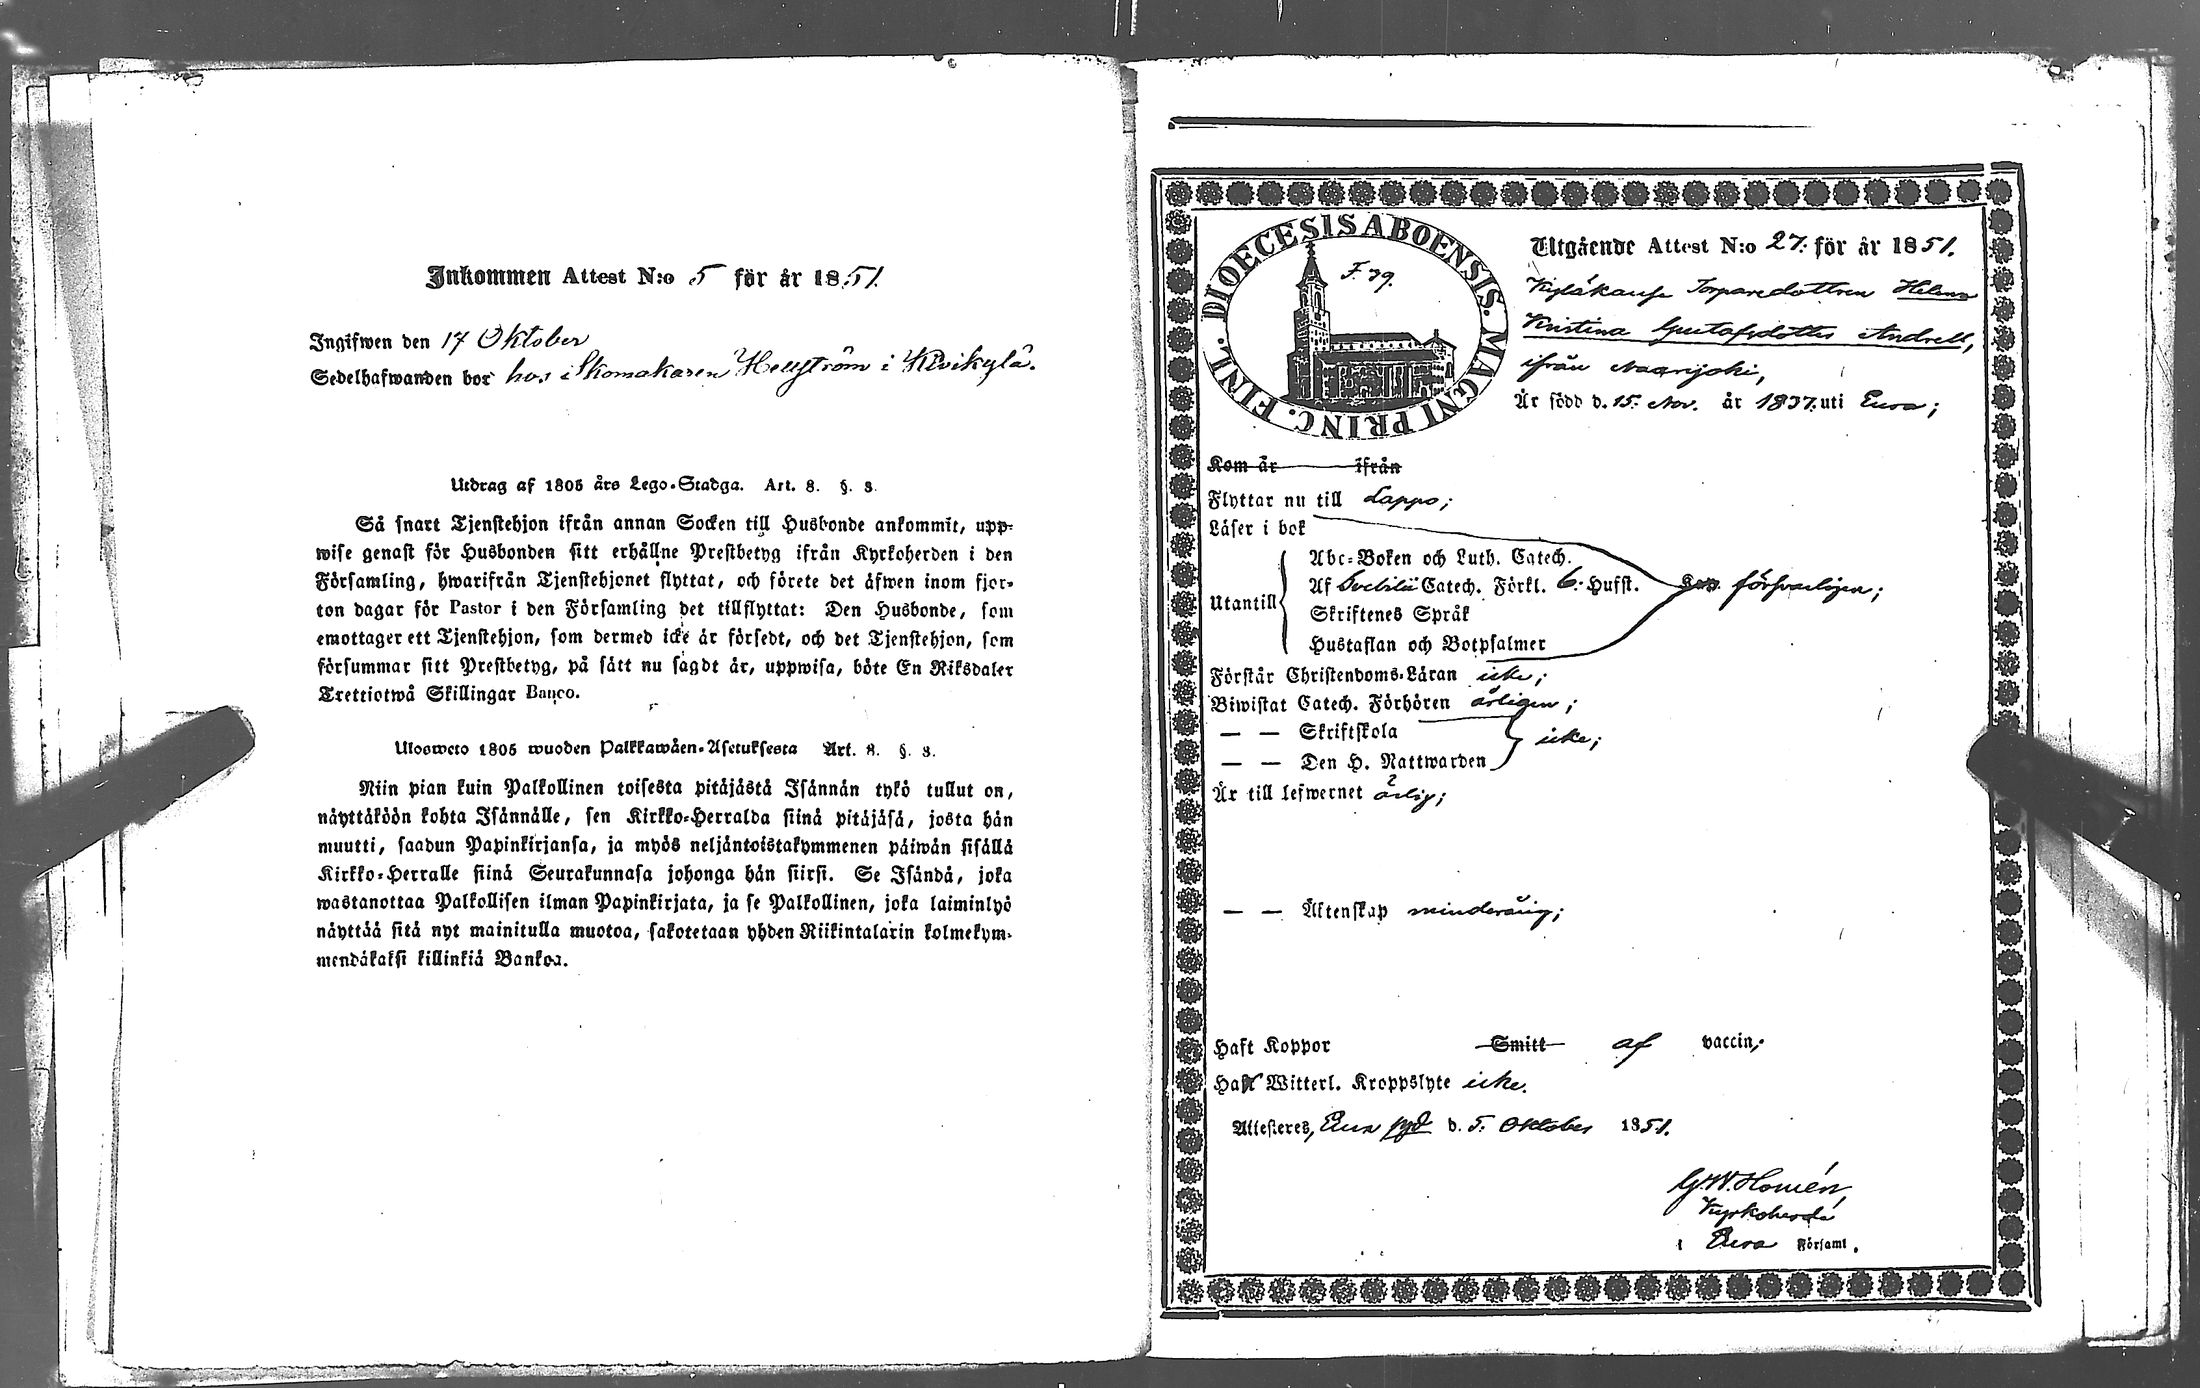 Inkommen Attest N:o 5 för år 1851.
Ingifwen den 17 Oktober
Sedelhafwanden bor hos Skomakaren Hellström i Kivikylä.
Utdrag af 1805 års Lego-Stadga. Art. 8. §. 8.
Så snart Tjenstehjon ifrån annan Socken till Husbonde ankommit, upp-
wise genast för Husbonden sitt erhållne Prestbetyg ifrån Kyrkoherden i den
Församling, hwarifrån Tjenstehjonet flyttat, och förete det äfwen inom fjor-
ton dagar för Pastor i den Församling det tillflyttat: Den Husbonde, som
emottager ett Tjenstehjon, som dermed icke är försedt, och det Tjenstehjon, som
försummar sitt Prestbetyg, på sätt nu sagdt är, uppwisa, böte En Riksdaler
Trettiotwå Skillingar Banco.
Ulosweto 1805 wuoden Palkkawäen-Asetuksesta Art. 8. §. 8.
Niin pian kuin Palkollinen toisesta pitäjästä Isännän tykö tullut on,
näyttäköön kohta Isännälle, sen Kirkko-Herralda siinä pitäjäsä, josta hän
muutti, saadun Papinkirjansa, ja myös neljäntoistakymmenen päiwän sisällä
Kirkko-Herralle siinä Seurakunnasa johonga hän siirsi. Se Isändä, joka
wastanottaa Palkollisen ilman Papinkirjata, ja se Palkollinen, joka laiminlyö
näyttää sitä nyt mainitulla muotoa, sakotetaan yhden Riikintalarin kolmekym-
mendäkaksi killinkiä Bankoa.
DIOECESIS ABOENSIS. MAGNI PRINC. FINL.
F. 39.
Utgående Attest N:o 27. för år 1851.
Torparedottren Helena
Kristina Gustafsdotter Andrell,
ifrån Naarijoki,
Är född d. 15. Nov. år 1837. uti Eura;
Kom år ifrån
Flyttar nu till Lappo;
Läser i bok
Utantill
Abc-Boken och Luth. Catech.
Af Svebilii Catech. Förkl. 6. Hufst.
Skriftenes Språk
Hustaflan och Botpsalmer
försvarligen;
Förstår Christendoms-Läran icke;
Biwistat Catech. Förhören årligen;
— — Skriftskola
— — Den H. Nattwarden
icke;
Är till lefwernet ärlig;
— — Äktenskap minderårig;
Haft Koppor Smitt af vaccin;
Haft Witterl. Kroppslyte icke.
Attesteres, Eura pgd d. 5. Oktober 1851.
G.W. Homén,
Kyrkoherde
i Eura Församl.